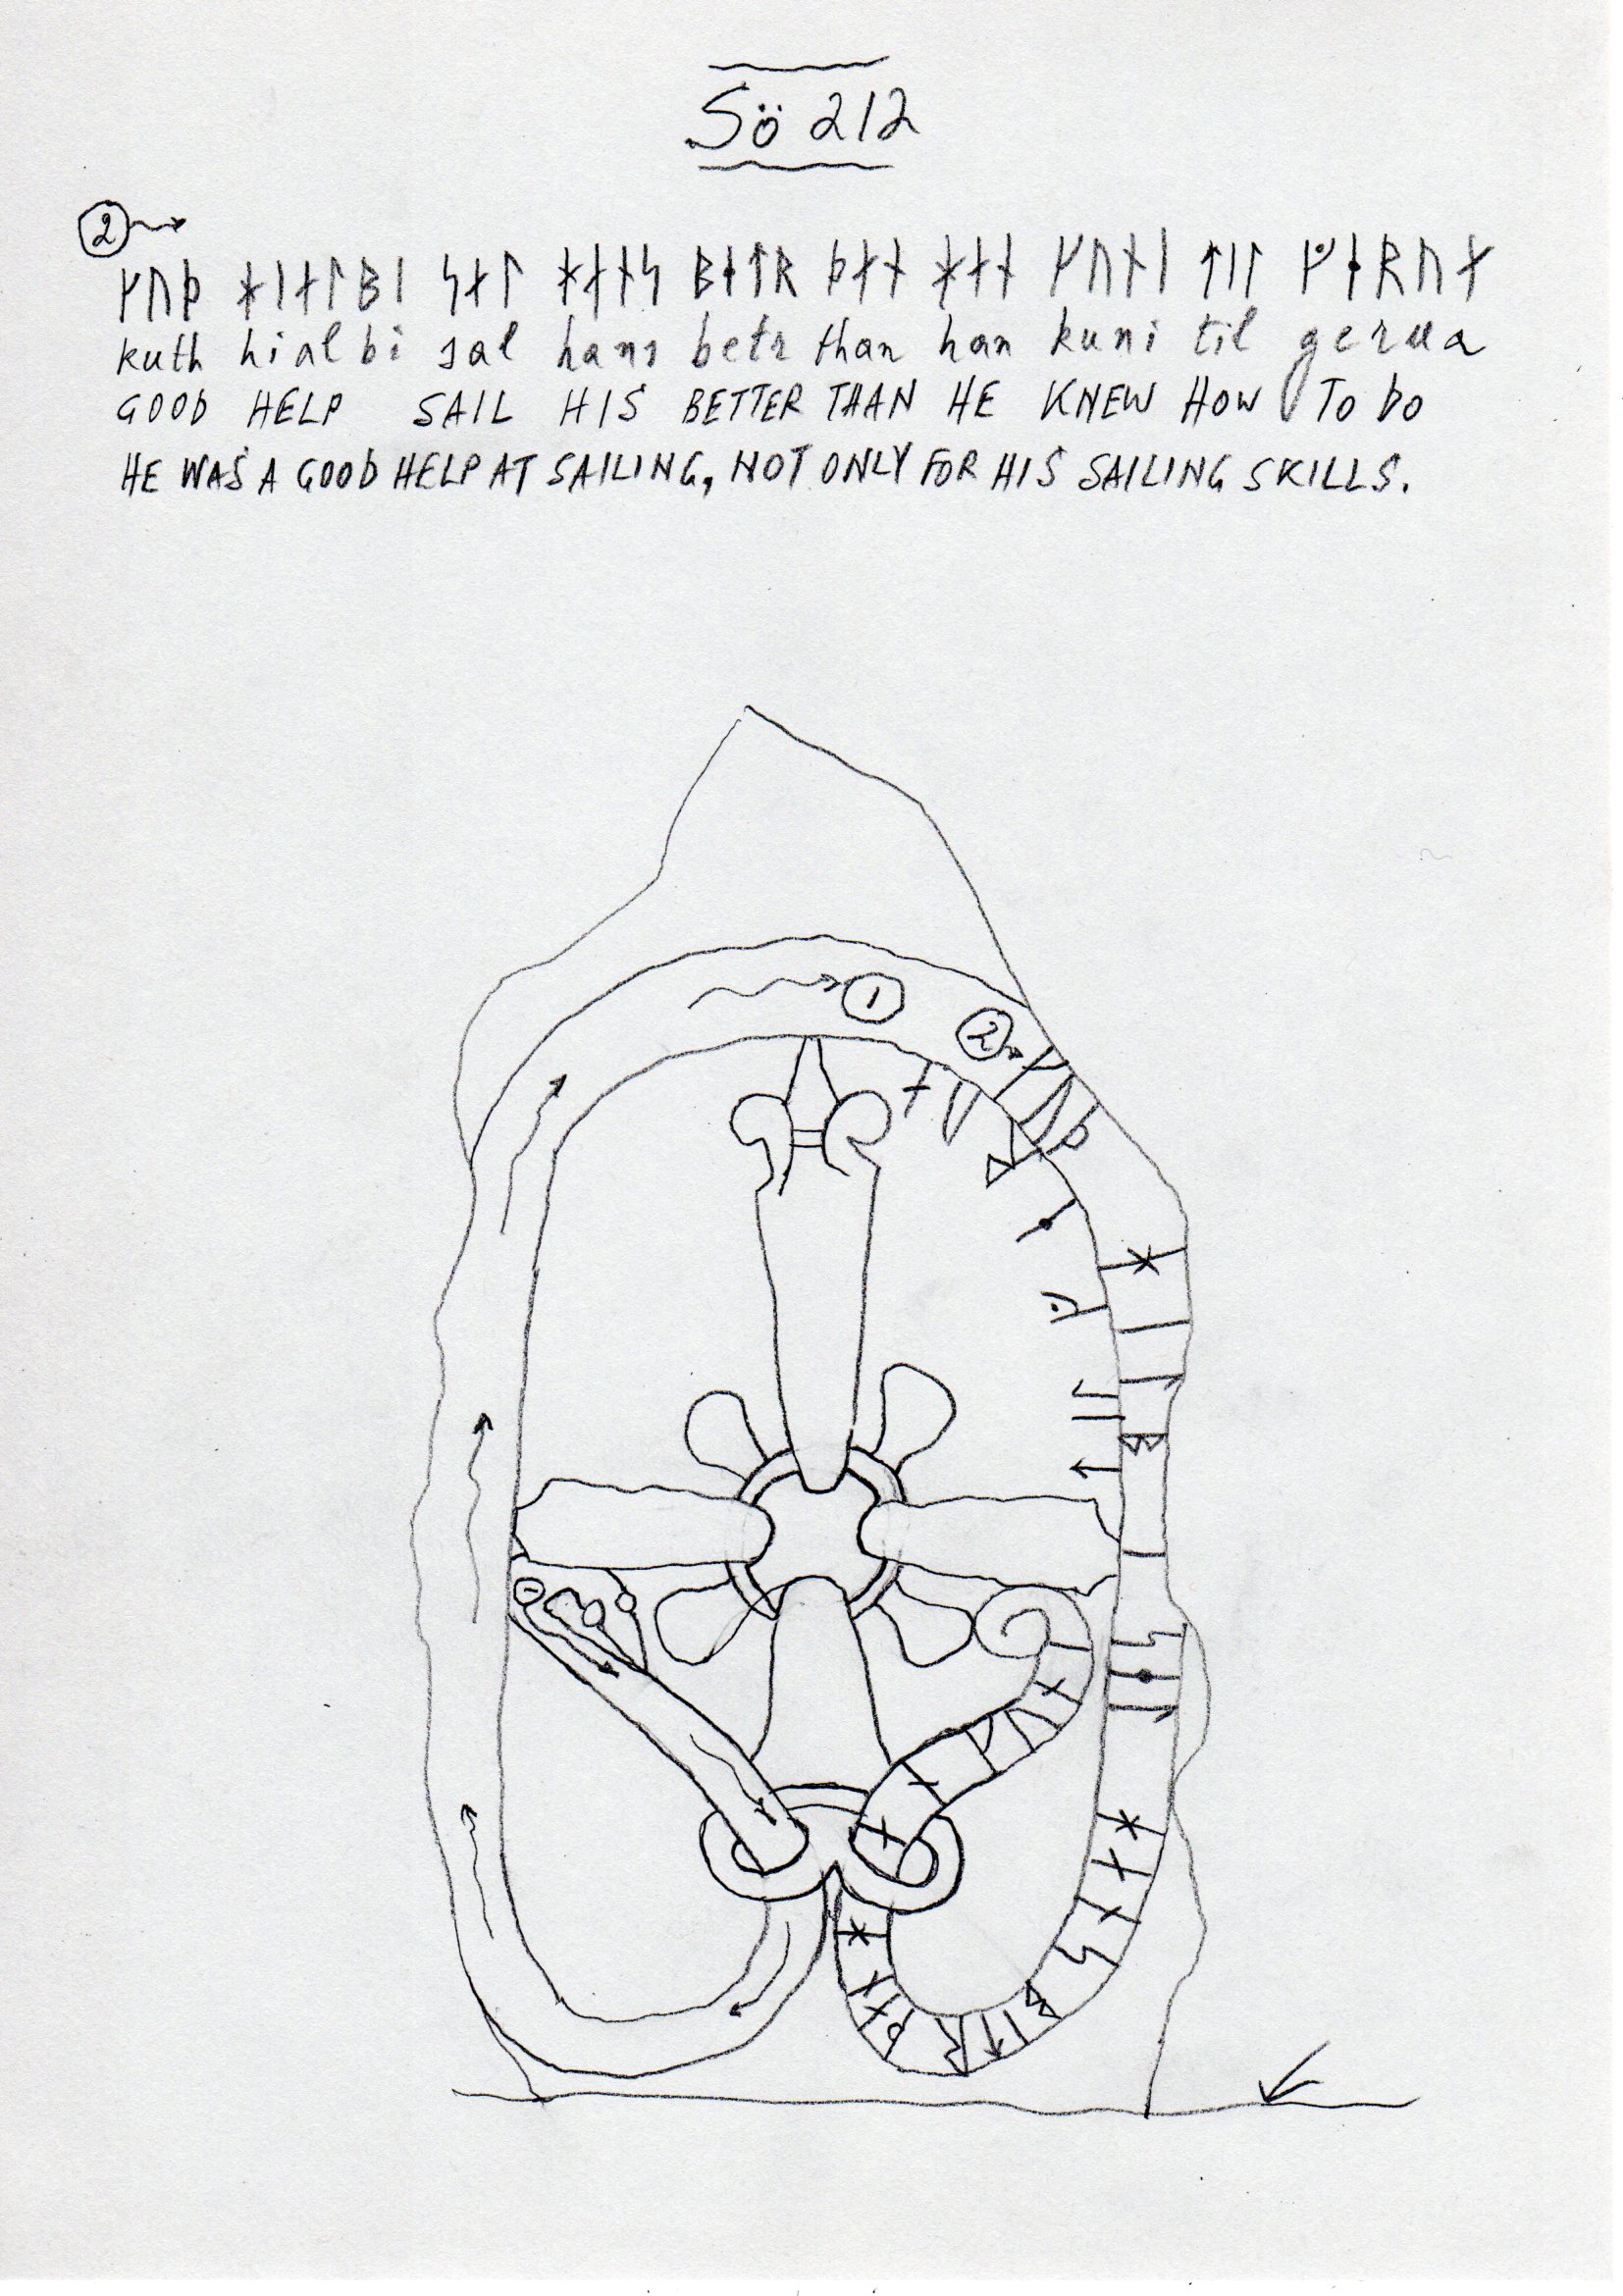 Sö 212
2
ᚴᚢᚦ ᚼᛁᛅᛚᛒᛁ ᛋᛅᛚ ᚼᛅᚾᛋ ᛒᛂᛏᚱ ᚦᛅᚾ ᚼᛅᚾ ᚴᚢᚾᛁ ᛏᛁᛚ ᚵᛂᚱᚢᛅ
kuth hialbi sal hans betr than han kuni til gerua
GOOD HELP SAIL HIS BETTER THAN HE KNEW HOW TO DO
HE WAS A GOOD HELP AT SAILING, NOT ONLY FOR HIS SAILING SKILLS.
1
2